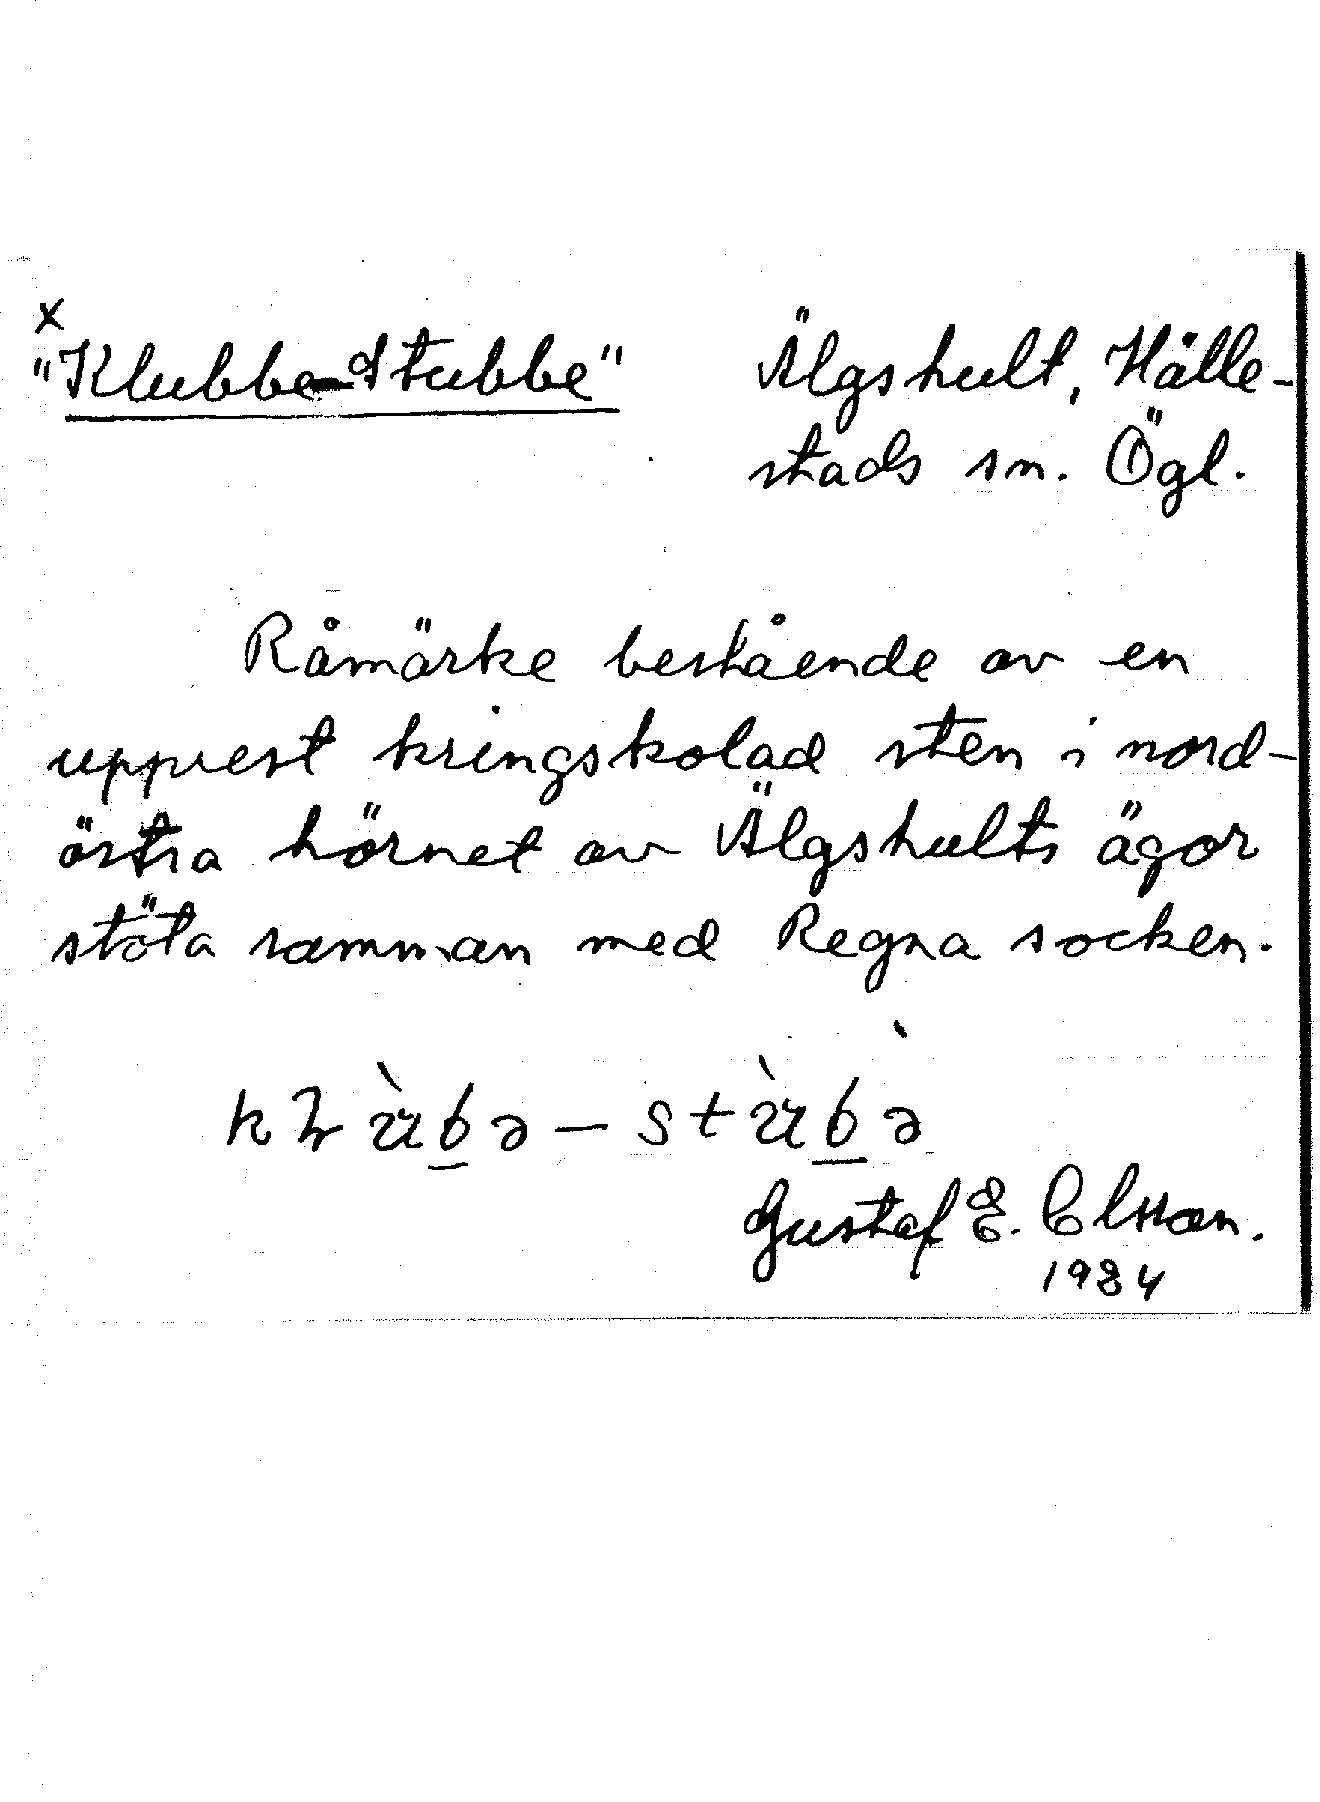 x
"Klubbe-Stubbe" Älgshult, Hälle-
stads sn. Ögl.
Råmärke bestående av en
upprest kringskolad sten i nord-
östra hörnet av Älgshults ägor
stöta samman med Regna socken.
Gustaf E. Olsson.
1984